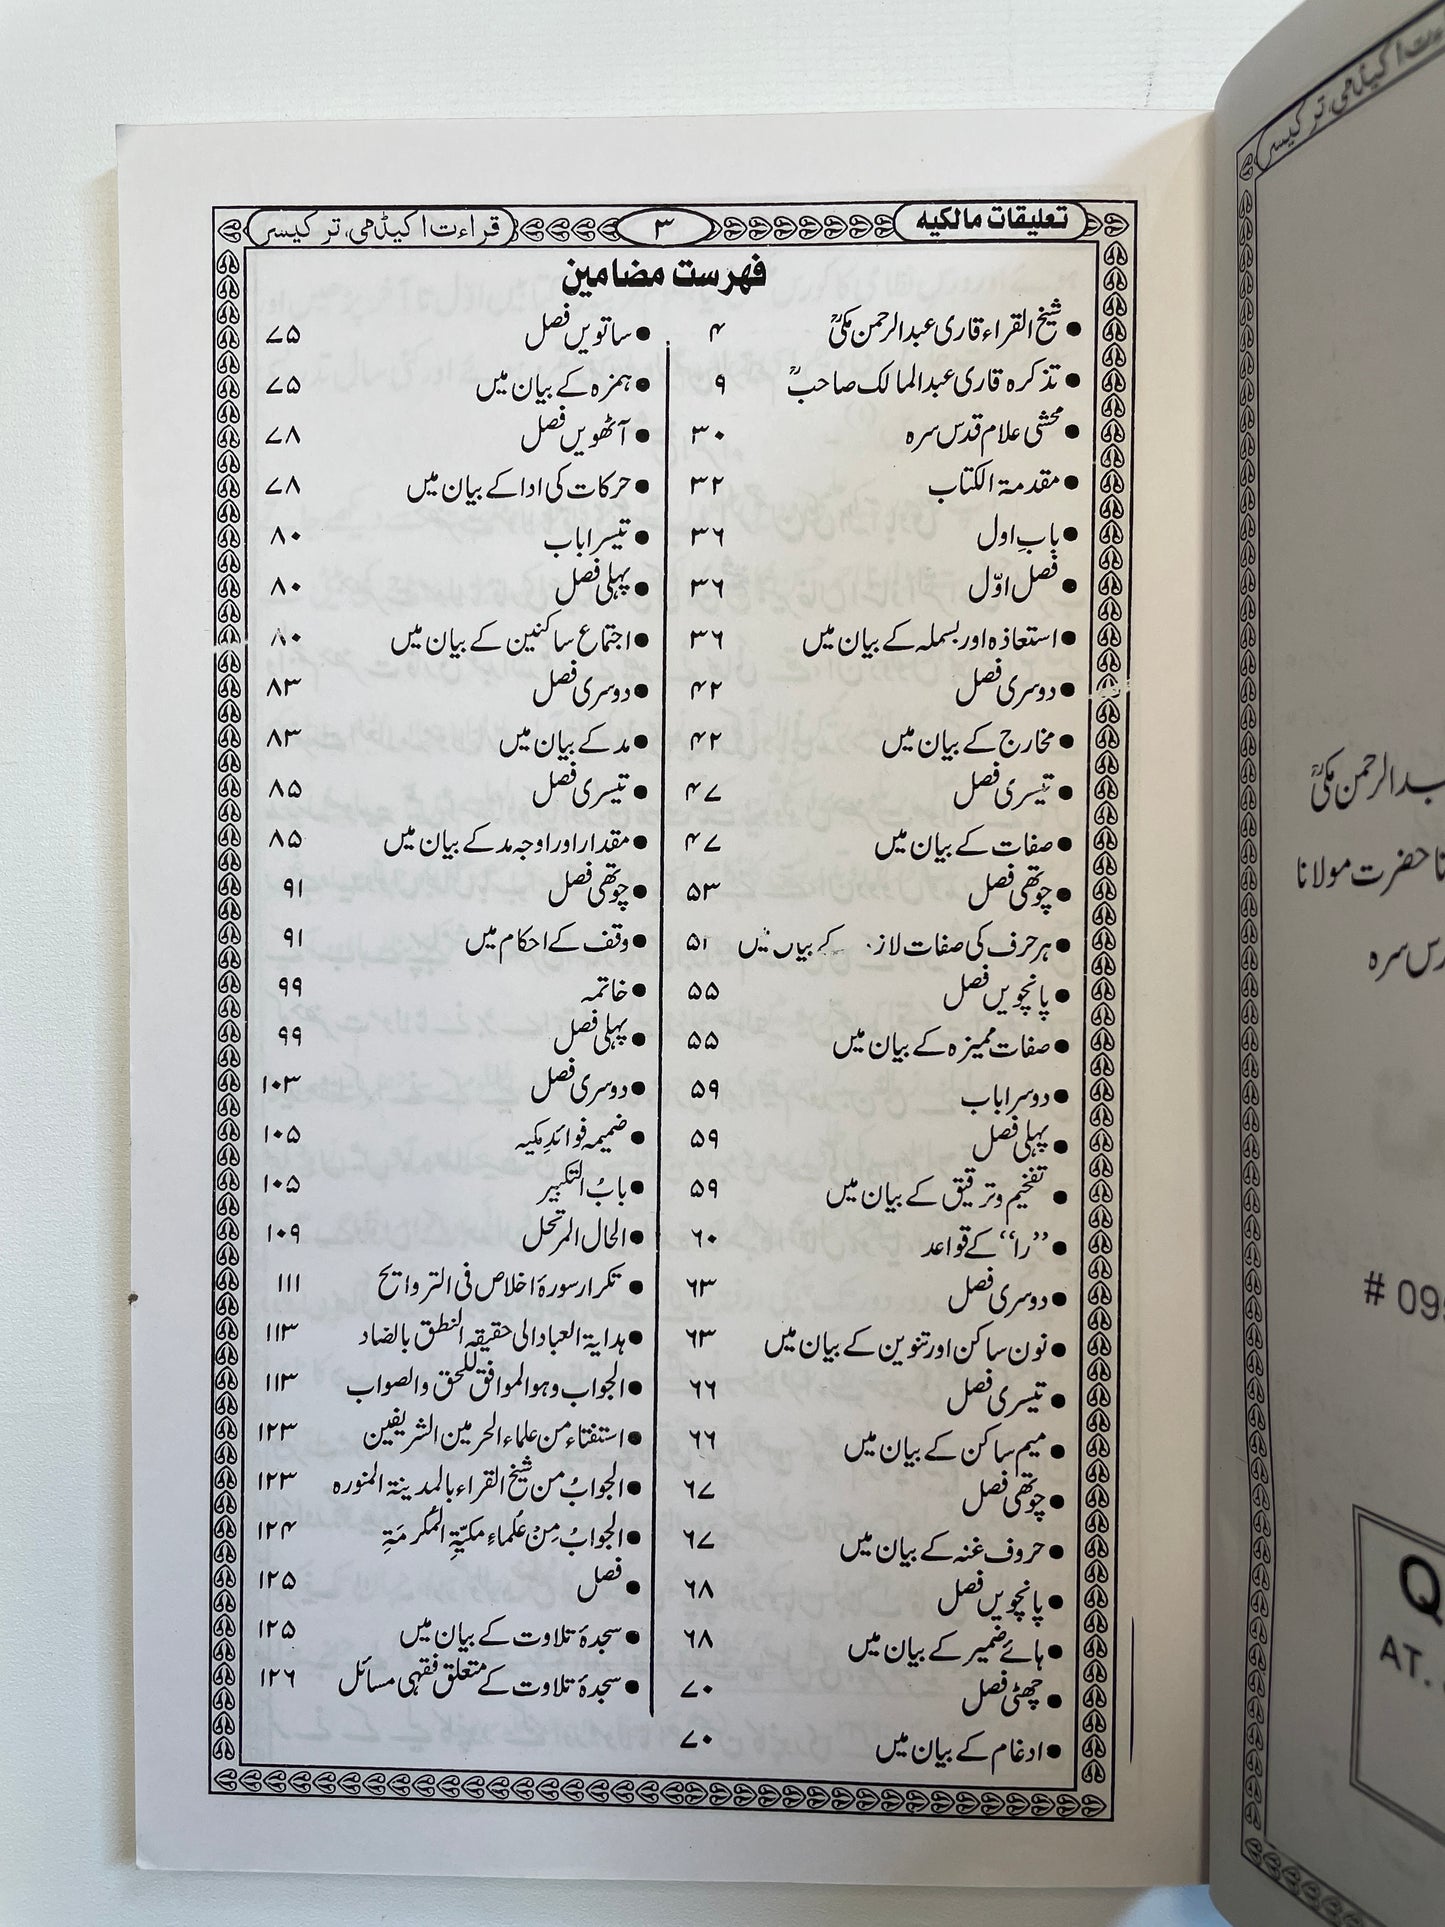 تعلیقات مالکیہ
۳
قراءت اکیڈمی، ترکیسر
فہرست مضامین
● شیخ القراء قاری عبدالرحمن مکیؒ ۴
● تذکرہ قاری عبدالمالک صاحبؒ ۹
● محشی علام قدس سرہ ۳۰
● مقدمۃ الکتاب ۳۲
● بابِ اول ۳۶
● فصل اوّل ۳۶
● استعاذہ اور بسملہ کے بیان میں ۳۶
● دوسری فصل ۴۲
● مخارج کے بیان میں ۴۲
● تیسری فصل ۴۷
● صفات کے بیان میں ۴۷
● چوتھی فصل ۵۳
● ہر حرف کی صفات کے بیان میں
● پانچویں فصل ۵۵
● صفات ممیزہ کے بیان میں ۵۵
● دوسرا باب ۵۹
● پہلی فصل ۵۹
● تفخیم وترقیق کے بیان میں ۵۹
● ”را“ کے قواعد ۶۰
● دوسری فصل ۶۳
● نون ساکن اور تنوین کے بیان میں ۶۳
● تیسری فصل ۶۶
● میم ساکن کے بیان میں ۶۶
● چوتھی فصل ۶۷
● حروف غنہ کے بیان میں ۶۷
● پانچویں فصل ۶۸
● ہائے ضمیر کے بیان میں ۶۸
● چھٹی فصل ۷۰
● ادغام کے بیان میں ۷۰
● ساتویں فصل ۷۵
● ہمزہ کے بیان میں ۷۵
● آٹھویں فصل ۷۸
● حرکات کی ادا کے بیان میں ۷۸
● تیسرا باب ۸۰
● پہلی فصل ۸۰
● اجتماع ساکنین کے بیان میں ۸۰
● دوسری فصل ۸۳
● مد کے بیان میں ۸۳
● تیسری فصل ۸۵
● مقدار اور اوجہ مد کے بیان میں ۸۵
● چوتھی فصل ۹۱
● وقف کے احکام میں ۹۱
● خاتمہ ۹۹
● پہلی فصل ۹۹
● دوسری فصل ۱۰۳
● ضمیمہ فوائدِ مکیہ ۱۰۵
● بابُ التکبیر ۱۰۵
● الحال المرتحل ۱۰۹
● تکرار سورۂ اخلاص فی التراویح ۱۱۱
● ہدایۃ العباد الی حقیقہ النطق بالضاد ۱۱۳
● الجواب وہو الموافق للحق والصواب ۱۱۳
● استفتاء من علماء الحرمین الشریفین ۱۲۳
● الجوابُ من شیخ القراء بالمدینۃ المنورہ ۱۲۳
● الجوابُ مِنْ عُلماء مکّۃِ المُکرمَۃِ ۱۲۴
● فصل ۱۲۵
● سجدۂ تلاوت کے بیان میں ۱۲۵
● سجدۂ تلاوت کے متعلق فقہی مسائل ۱۲۶
اکیڈمی، ترکیسر
الرحمن مکیؒ
حضرت مولانا
سرہ
# 09
Q
AT.